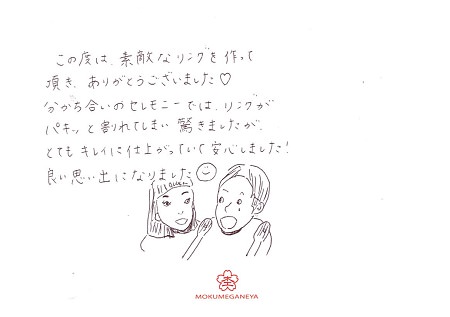 この度は、素敵なリングを作って
頂き、ありがとうございました♡
分かち合いのセレモニーでは、リングが
パキッと割れてしまい驚きましたが、
とてもキレイに仕上がっていて安心しました!
良い思い出になりました☺
MOKUMEGANEYA